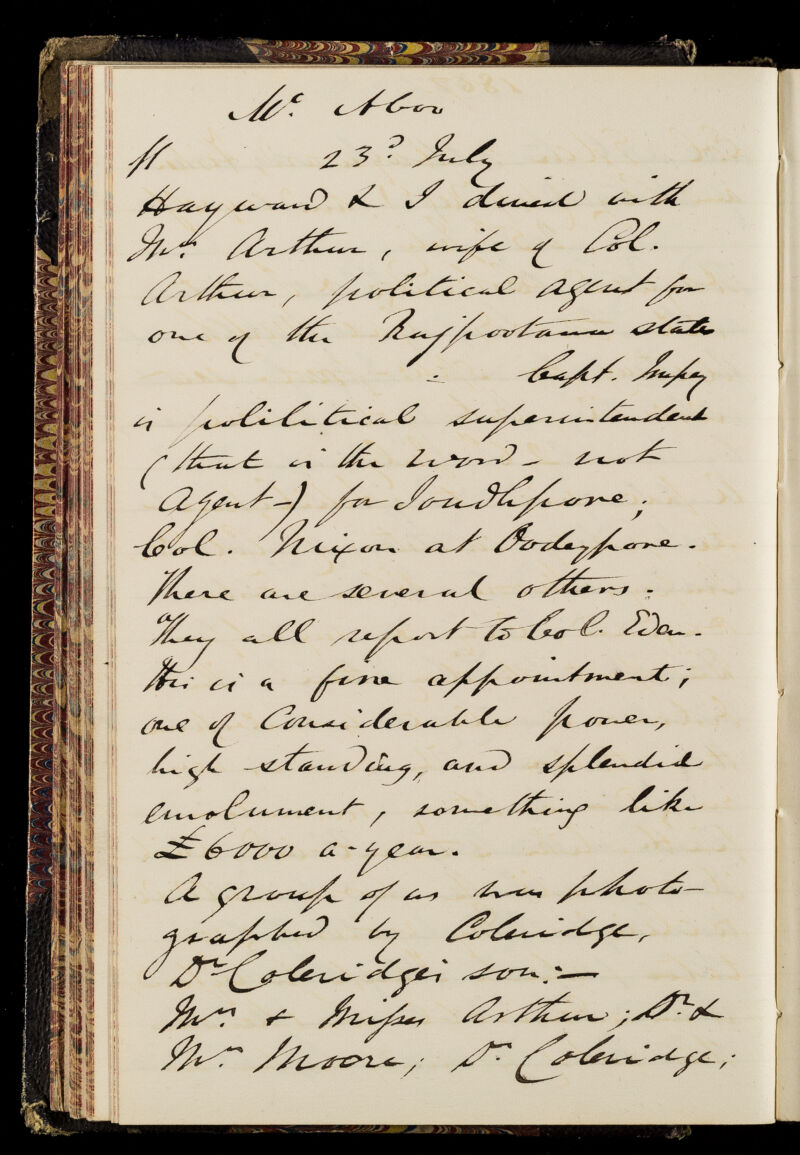 Mt. Aboo
23d. July
Hayward & I dined with
Mrs. Arthur, wife of Col.
Arthur, political agent for
one of the Rajpootana states
Capt. Impey
is polilitical superintendent
(that is the word - not
Agent -) for Joudhpore;
Col. Nixon at Oodeypore.
There are several others.
They all report to Col. Eden.
this is a fine appointment;
one of considerable power,
high standing, and splendid
emolument, something like
£6000 a-year.
A group of us was photo-
graphed by Coleridge,
Dr Coleridge's son:—
Mrs. & Misses Arthur; Dr. &
Mrs. Moore; Dr. Coleridge;